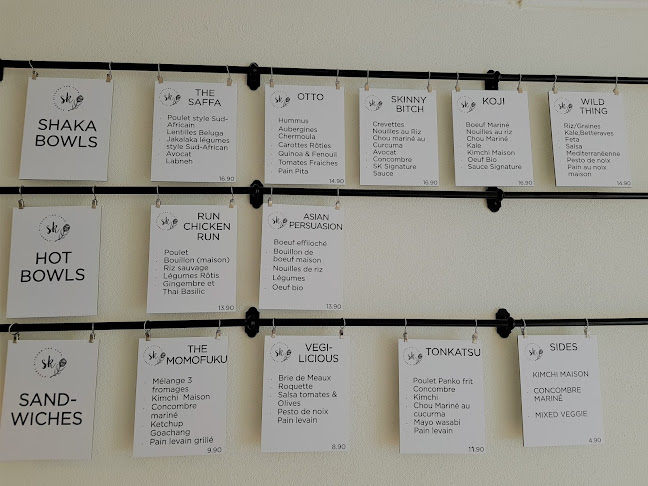 sk
SHAKA
BOWLS
sk
THE
SAFFA
Poulet style Sud-
Africain
Lentilles Beluga
Jakalaka légumes
style Sud-African
Avocat
Labneh
16.90
sk
OTTO
Hummus
Aubergines
Chermoula
Carottes Rôties
Quinoa & Fenouil
Tomates Fraiches
Pain Pita
14.90
sk
SKINNY
BITCH
Crevettes
Nouilles au Riz
Chou mariné au
Curcuma
Avocat
Concombre
SK Signature
Sauce
16.90
sk
KOJI
Boeuf Mariné
Nouilles au riz
Chou Mariné
Kale
Kimchi Maison
Oeuf Bio
Sauce Signature
16.90
sk
WILD
THING
Riz/Graines
Kale,Betteraves
Feta
Salsa
Mediterranéenne
Pesto de noix
Pain su noix
maison
14.90
sk
HOT
BOWLS
sk
RUN
CHICKEN
RUN
Poulet
Bouillon (maison)
Riz sauvage
Légumes Rôtis
Gingembre et
Thai Basilic
13.90
sk
ASIAN
PERSUASION
Boeuf effiloché
Bouillon de
boeuf maison
Nouilles de riz
Légumes
Oeuf bio
13.90
sk
SAND-
WICHES
sk
THE
MOMOFUKU
- Mélange 3
fromages
- Kimchi Maison
- Concombre
mariné
- Ketchup
Goachang
- Pain levain grillé
9.90
sk
VEGI-
LICIOUS
- Brie de Meaux
- Roquette
- Salsa tomates &
Olives
- Pesto de noix
- Pain levain
8.90
sk
TONKATSU
- Poulet Panko frit
- Concombre
- Kimchi
- Chou Mariné au
cucurma
- Mayo wasabi
- Pain levain
11.90
sk
SIDES
- KIMCHI MAISON
- CONCOMBRE
MARINÉ
- MIXED VEGGIE
4.90